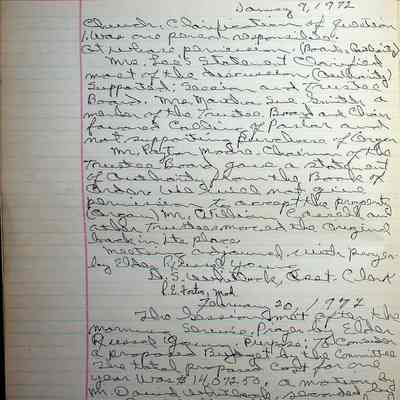 January 9, 1972
Church. Clarification of question
1. Was one person responsible.
at whose permission. (Board, Authority)
Mrs. Lee's Statement Clarified
most of the discussion (Authority)
Supported: Session and Trustee
Board. Mrs. Martha Sue Smith, a
member of the Trustee Board and Choir
favored Calling of Pastor and
not supporting purchase of Organ
Mr. Moore: Chairman of the
Trustee Board gave a statement
of Authority from the Book of
Order. We will not give
permission to accept the property
(Organ) Mr. William and
other Trustees moved the Original
back in its place
Meeting adjourned with prayer
by Elder Russell Young
D. S. Westbrook, Clerk
R.E. Foster, Mod.
February 20, 1972
The Session met after the
morning Service, Prayer by Elder
Russell Young, Purpose: To Consider
a proposed Budget by the Committee
The total proposed Cost for one
year was $14,072.50, a motion by
Mr. David Westbrook, seconded by